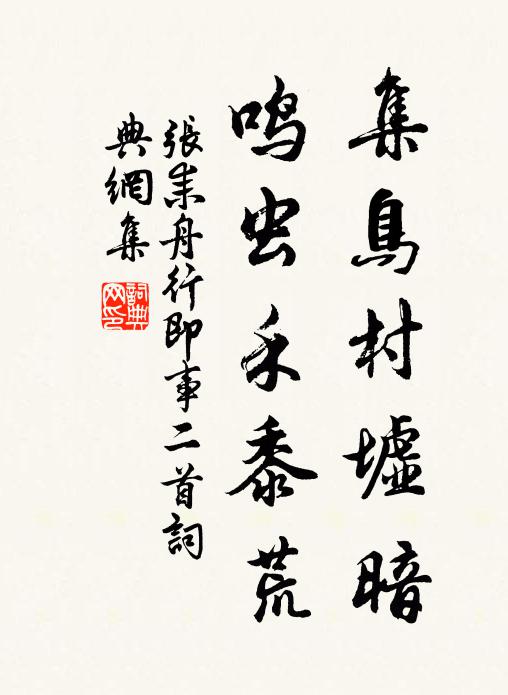 集鳥村墟暗
鳴虫禾黍荒
張耒舟行即事二首詞
典網集
詞典網印